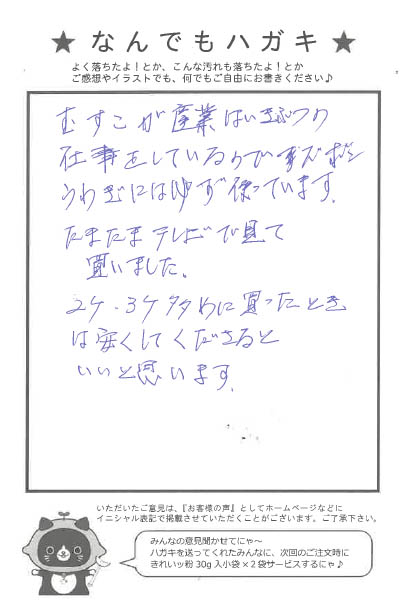 ★ なんでもハガキ ★
よく落ちたよ！とか、こんな汚れも落ちたよ！とか
ご感想やイラストでも、何でもご自由にお書きください♪
むすこが産業はいきぶつの
仕事をしているのでズボン
うわぎには必ず使っています。
たまたまテレビで見て
買いました。
2ケ・3ケ多めに買ったとき
は安くしてくださると
いいと思います。
いただいたご意見は、『お客様の声』としてホームページなどに
イニシャル表記で掲載させていただくことがございます。ご了承下さい。
みんなの意見聞かせてにゃ～
ハガキを送ってくれたみんなに、次回のご注文時に
きれいッ粉 30g 入小袋×2袋サービスするにゃ♪